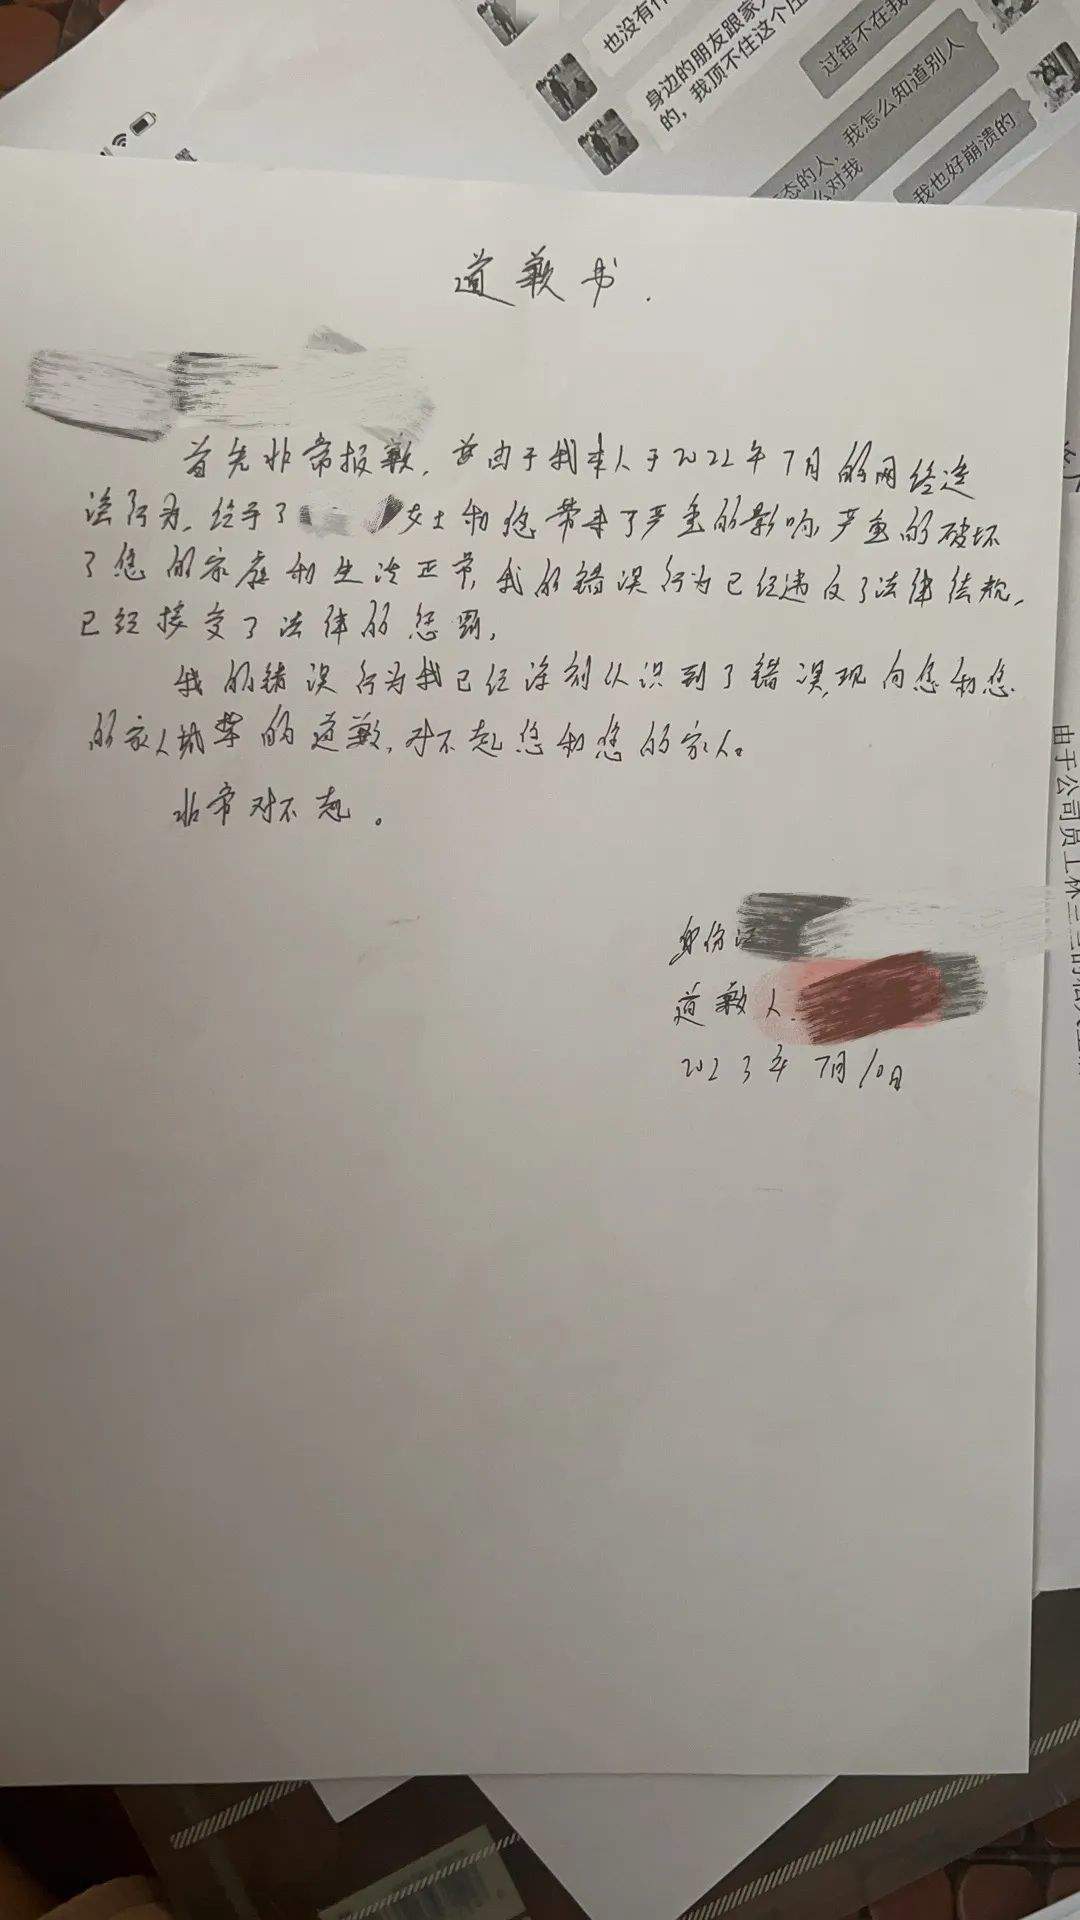 也没有
身边的朋友跟家
的，我顶不住这个
过错不在我
态的人，我怎么知道别人
么对我
我也好崩溃的
道歉书.
首先非常报歉，由于我本人于2022年7月的网络违
法行为，给予了
女士和您带来了严重的影响严重的破坏
了您的家庭和生活正常，我的错误行为已经违反了法律法规，
已经接受了法律的惩罚，
我的错误行为我已经深刻认识到了错误，现向您和您
的家人诚挚的道歉，对不起您和您的家人。
非常对不起。
身份证
道歉人.
2023年7月10日
由于公司员工林三三的